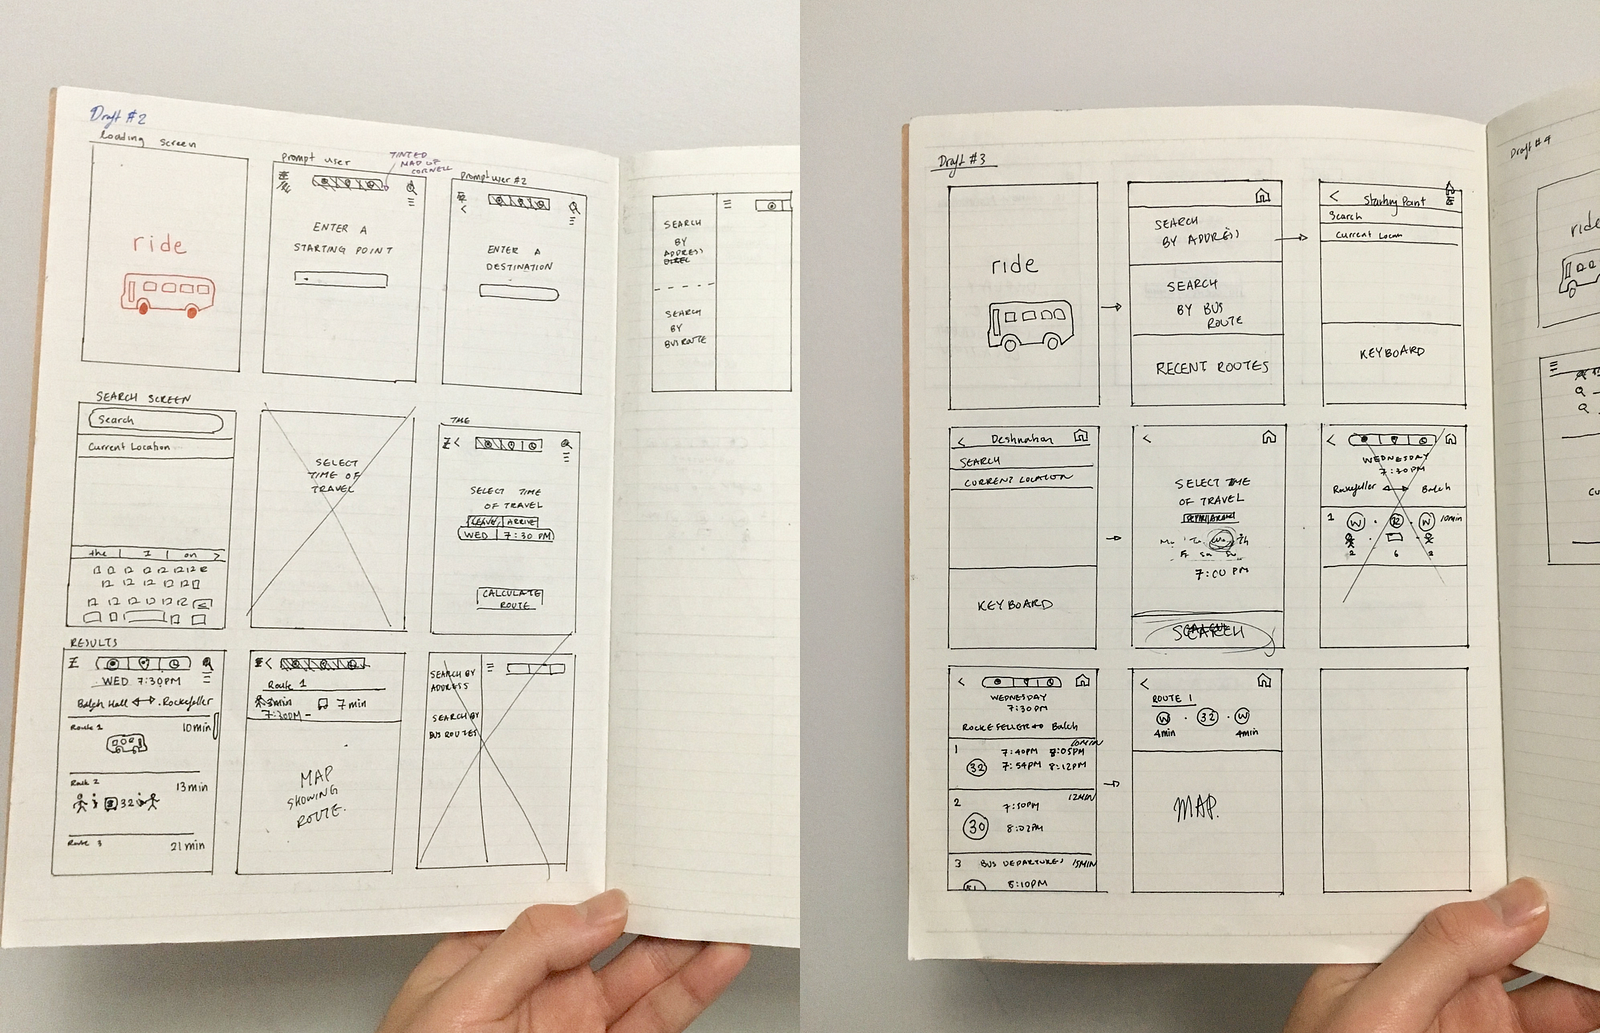 Draft #2
loading screen
ride
prompt user
TINTED
MAP OF
CORNELL
ENTER A
STARTING POINT
prompt user #2
ENTER A
DESTINATION
SEARCH
BY
ADDRESS
SEARCH
BY
BUS ROUTE
SEARCH SCREEN
Search
Current Location
the | I | on >
SELECT
TIME OF
TRAVEL
TIME
SELECT TIME
OF TRAVEL
LEAVE ARRIVE
WED 7:30 PM
CALCULATE
ROUTE
RESULTS
WED 7:30PM
Balch Hall ↔ Rockefeller
Route 1 10min
Route 2 13min
32
Route 3 21 min
Route 1
3min 7min
7:30PM -
MAP
SHOWING
ROUTE.
SEARCH BY
ADDRESS
SEARCH BY
BUS ROUTES
Draft #3
ride
SEARCH
BY ADDRESS
SEARCH
BY BUS
ROUTE
RECENT ROUTES
< Starting Point
Search
Current Locan
KEYBOARD
< Destination
SEARCH
CURRENT LOCATION
KEYBOARD
<
SELECT TIME
OF TRAVEL
Mo Tu We Th
Fr Sa Su
7:00 PM
SEARCH
<
WEDNESDAY
7:30PM
Rockefeller ↔ Balch
1 W · R · W 10min
2 6 2
<
WEDNESDAY
7:30PM
ROCKEFELLER ↔ Balch
1 10MIN
7:40PM 8:05PM
32 7:54PM 8:12PM
2 12MIN
7:50PM
30 8:02PM
3 BUS DEPARTURES 15MIN
8:10PM
<
ROUTE 1
W · 32 · W
4min 4min
MAP.
Draft #4
ride